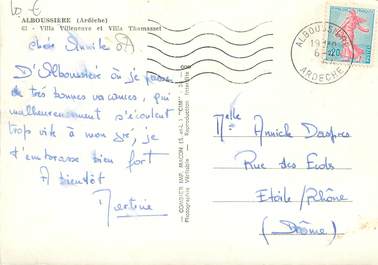 10 €
ALBOUSSIERE (Ardèche)
62 - Villa Villeneuve et Villa Thomasset
Chère Annick
D'Alboussière où je passe
de très bonnes vacances, qui
malheureusement s'écoulent
trop vite à mon gré, je
t'embrasse bien fort
A bientôt
Martine
COMBIER IMP. MACON (S.-et-L.) "CIM"
Photographie Véritable - Reproduction Interdite
ALBOUSSIERE
ARDECHE
Melle Annick Desopres
Rue des Ecols
Etoile/Rhône
(Drôme)